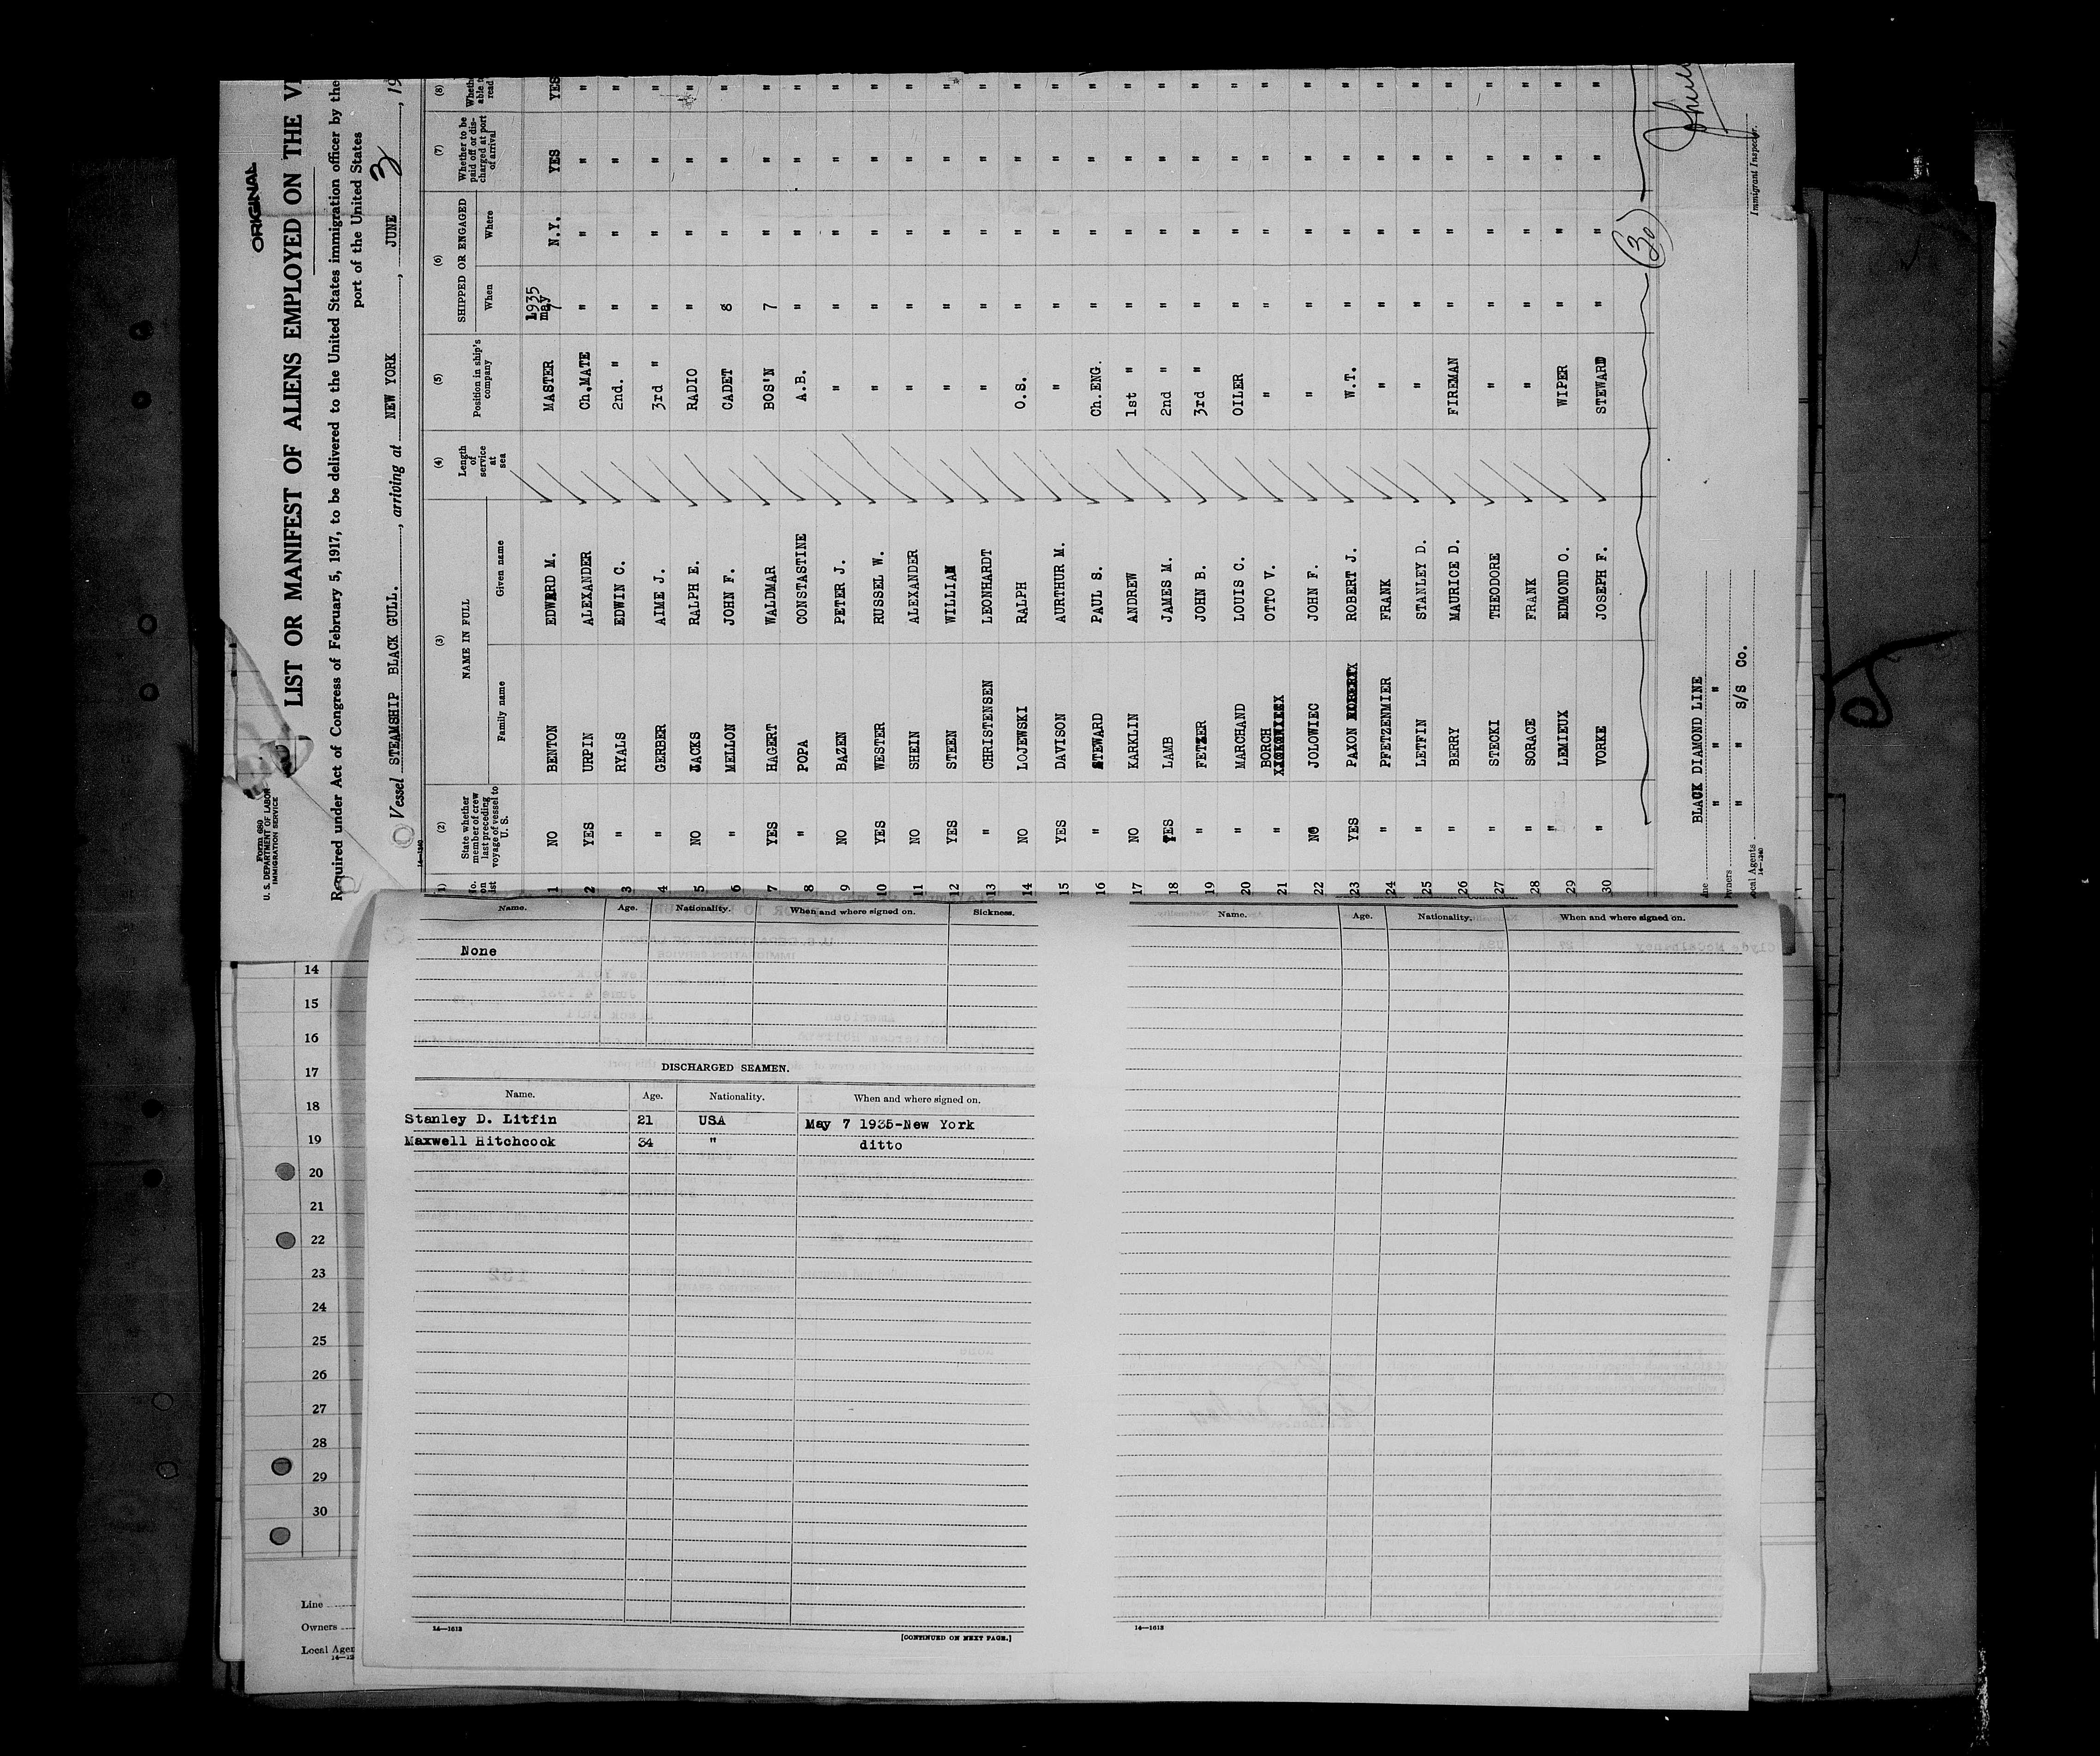 ORIGINAL
Form 680
U. S. DEPARTMENT OF LABOR
IMMIGRATION SERVICE
LIST OR MANIFEST OF ALIENS EMPLOYED ON THE
Required under Act of Congress of February 5, 1917, to be delivered to the United States immigration officer by the
port of the United States
Vessel STEAMSHIP BLACK GULL. , arriving at NEW YORK , JUNE 3 , 19
14-1240
(2) (3) (4) (5) (6) (7) (8)
No. on list State whether member of crew last preceding voyage of vessel to U. S. NAME IN FULL Length of service at sea Position in ship's company SHIPPED OR ENGAGED Whether to be paid off or discharged at port of arrival
Family name Given name When Where
1 NO BENTON EDWARD M. MASTER 1935 may 7 N.Y. YES YES
2 YES URPIN ALEXANDER Ch.MATE " " " "
3 " RYALS EDWIN C. 2nd. " " " " "
4 " GERBER AIME J. 3rd " " " " "
5 NO JACKS RALPH E. RADIO " " " "
6 " MELLON JOHN F. CADET 8 " " "
7 YES HAGERT WALDMAR BOS'N 7 " " "
8 " POPA CONSTASTINE A.B. " " " "
9 NO BAZEN PETER J. " " " " "
10 YES WESTER RUSSEL W. " " " " "
11 NO SHEIN ALEXANDER " " " " "
12 YES STEEN WILLIAM " " " " "
13 " CHRISTENSEN LEONHARDT " " " " "
14 NO LOJEWSKI RALPH O.S. " " " "
15 YES DAVISON AURTHUR M. " " " " "
16 " STEWARD PAUL S. Ch.ENG. " " " "
17 NO KARKLIN ANDREW 1st " " " " "
18 YES LAMB JAMES M. 2nd " " " " "
19 " FETZER JOHN B. 3rd " " " " "
20 " MARCHAND LOUIS C. OILER " " " "
21 " BORCH OTTO V. " " " " "
22 NO JOLOWIEC JOHN F. " " " " "
23 YES PAXON ROBERT J. W.T. " " " "
24 " PFETZENMIER FRANK " " " " "
25 " LETFIN STANLEY D. " " " " "
26 " BERRY MAURICE D. FIREMAN " " " "
27 " STECKI THEODORE " " " " "
28 " SORACE FRANK " " " " "
29 " LEMIEUX EDMOND O. WIPER " " " "
30 " VORKE JOSEPH F. STEWARD " " " "
(30)
BLACK DIAMOND LINE
Owners " " "
Local Agents " " S/S Co.
14-1240
Immigrant Inspector.
Name. Age. Nationality. When and where signed on. Sickness.
None
DISCHARGED SEAMEN.
Name. Age. Nationality. When and where signed on.
Stanley D. Litfin 21 USA May 7 1935-New York
Maxwell Hitchcock 34 " ditto
14—1613
[CONTINUED ON NEXT PAGE.]
Name. Age. Nationality. When and where signed on.
14—1613
14
15
16
17
18
19
20
21
22
23
24
25
26
27
28
29
30
Line
Owners
Local Agen